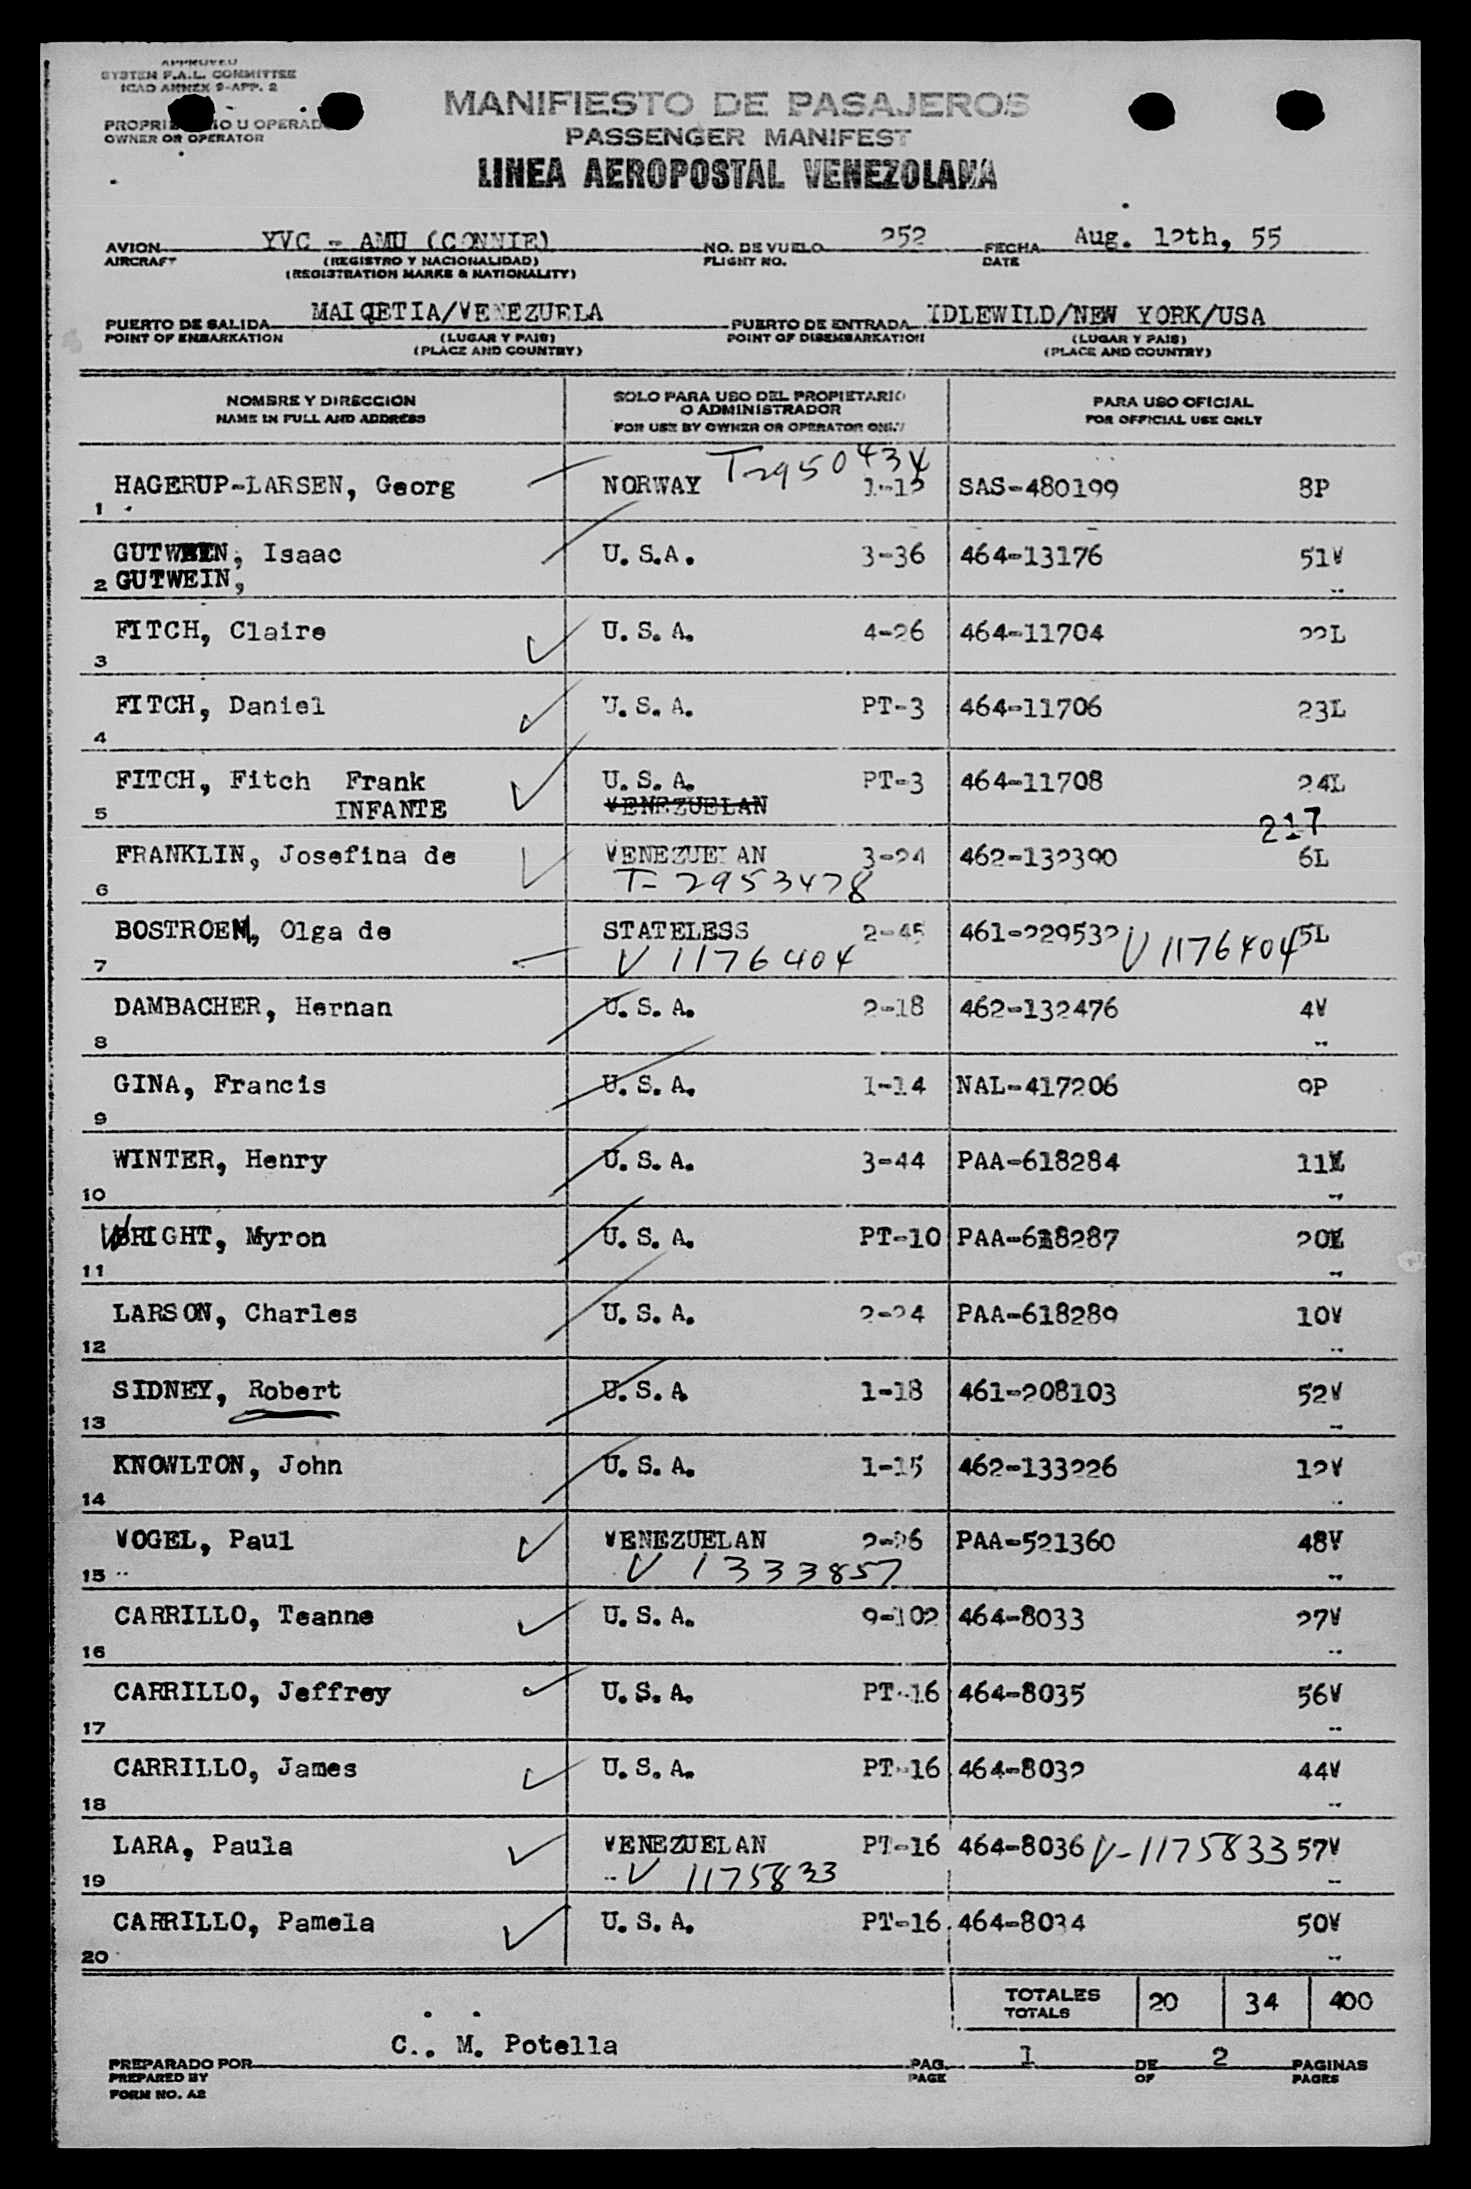 APPROVED
SYSTEM F.A.L. COMMITTEE
ICAO ANNEX 9-APP. 2
OWNER OR OPERATOR
MANIFIESTO DE PASAJEROS
PASSENGER MANIFEST
LINEA AEROPOSTAL VENEZOLANA
AVION YVC - AMU (CONNIE) NO. DE VUELO 252 FECHA Aug. 12th, 55
AIRCRAFT (REGISTRO Y NACIONALIDAD) FLIGHT NO. DATE
(REGISTRATION MARKS & NATIONALITY)
PUERTO DE SALIDA MAIQETIA/VENEZUELA PUERTO DE ENTRADA IDLEWILD/NEW YORK/USA
POINT OF EMBARKATION (LUGAR Y PAIS) POINT OF DISEMBARKATION (LUGAR Y PAIS)
(PLACE AND COUNTRY) (PLACE AND COUNTRY)
NOMBRE Y DIRECCION SOLO PARA USO DEL PROPIETARIO PARA USO OFICIAL
O ADMINISTRADOR
NAME IN FULL AND ADDRESS FOR USE BY OWNER OR OPERATOR ONLY FOR OFFICIAL USE ONLY
T-2950434
HAGERUP-LARSEN, Georg NORWAY 1-12 SAS-480199 8P
1
GUTWEIN, Isaac U.S.A. 3-36 464-13176 51V
2 GUTWEIN,
FITCH, Claire U.S.A. 4-26 464-11704 22L
3
FITCH, Daniel U.S.A. PT-3 464-11706 23L
4
FITCH, Fitch Frank U.S.A. PT-3 464-11708 24L
5 INFANTE VENEZUELAN
217
FRANKLIN, Josefina de VENEZUELAN 3-24 462-132390 6L
6 T-2953478
BOSTROEM, Olga de STATELESS 2-45 461-229532 V 1176404 5L
7 V 1176404
DAMBACHER, Hernan U.S.A. 2-18 462-132476 4V
8
GINA, Francis U.S.A. 1-14 NAL-417206 9P
9
WINTER, Henry U.S.A. 3-44 PAA-618284 11V
10
WRIGHT, Myron U.S.A. PT-10 PAA-618287 20V
11
LARSON, Charles U.S.A. 2-24 PAA-618289 10V
12
SIDNEY, Robert U.S.A 1-18 461-208103 52V
13
KNOWLTON, John U.S.A. 1-15 462-133226 12V
14
VOGEL, Paul VENEZUELAN 2-26 PAA-521360 48V
15 V 1333857
CARRILLO, Teanne U.S.A. 9-102 464-8033 27V
16
CARRILLO, Jeffrey U.S.A. PT-16 464-8035 56V
17
CARRILLO, James U.S.A. PT-16 464-8032 44V
18
LARA, Paula VENEZUELAN PT-16 464-8036 V-1175833 57V
19 V 1175833
CARRILLO, Pamela U.S.A. PT-16 464-8034 50V
20
TOTALES 20 34 400
TOTALS
C.. M. Potella
PREPARADO POR PAG. 1 DE 2 PAGINAS
PREPARED BY PAGE OF PAGES
FORM NO. A2